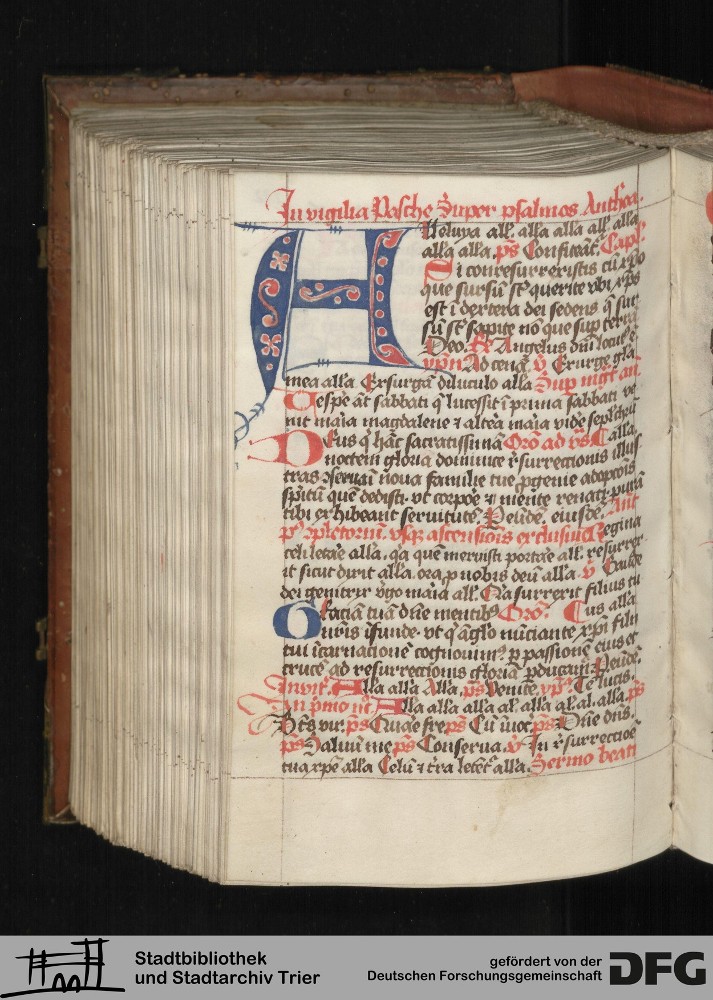 In vigilia Pasche Super psalmos Antha.
Alleluya all. alla alla all. alla
alla alla. ps Confiteāt. Capl.
Si conresurrexistis cū xp̄o
que sursū st̄ querite vbi xp̄s
est ī dextera dei sedens q̄ sur
sū st̄ sapite nō que sup terrā
Deo. R Angelus dn̄i locut' ē
ypn. Ad cenā. v Exurge gla
mea alla Exsurgā diluculo alla Sup mgt an
Vespe āt sabbati q̄ lucessit ī prima sabbati ve
nit maīa magdalene ⁊ altēa maīa videre seplchrū
Deus q̄ hāc sacratissimā Orō ad vs alla.
noctem gloria dominice rsurrectionis illus
tras ꝯserua ī noua familie tue ꝓgenie adopcōis
spīritū quē dedisti. vt corpoē ⁊ mente renati purā
tibi exhibeant seruitutē. Per eūdē. eiusdē. Ant
p' ꝯpletoriū. vsqꝫ ascensionis exclusiue Regina
celi letāe alla. qa quē meruisti portāe all. resurrex
it sicut dixit alla. ora p nobis deū alla. v Gaude
dei genitrix v̄go maīa all. Q̄a surrexit filius tu
Graciā tuā dn̄e mentibꝫ Orō. us alla
nr̄is īfunde. vt q̄ āgl̄o nūciante xp̄i filii
tui īcarnacionē cognouim⁹. p passionē eius et
crucē ad resurrectionis gloriā ꝓducam̄. P eūdē.
Invit. Alla alla Alla. ps Venite. yp. Te lucis.
In p̄mo nt. Alla alla alla al. alla al. al. alla. ps
Bt̄s vir. ps Quare fre ps Cū īuoc. ps Dn̄e dn̄s.
ps Saluū me ps Conserua. v In rsurrectiōe
tua xp̄e alla Celū ⁊ t̄ra letēt' alla. Sermo beati
Stadtbibliothek
und Stadtarchiv Trier
gefördert von der
Deutschen Forschungsgemeinschaft
DFG